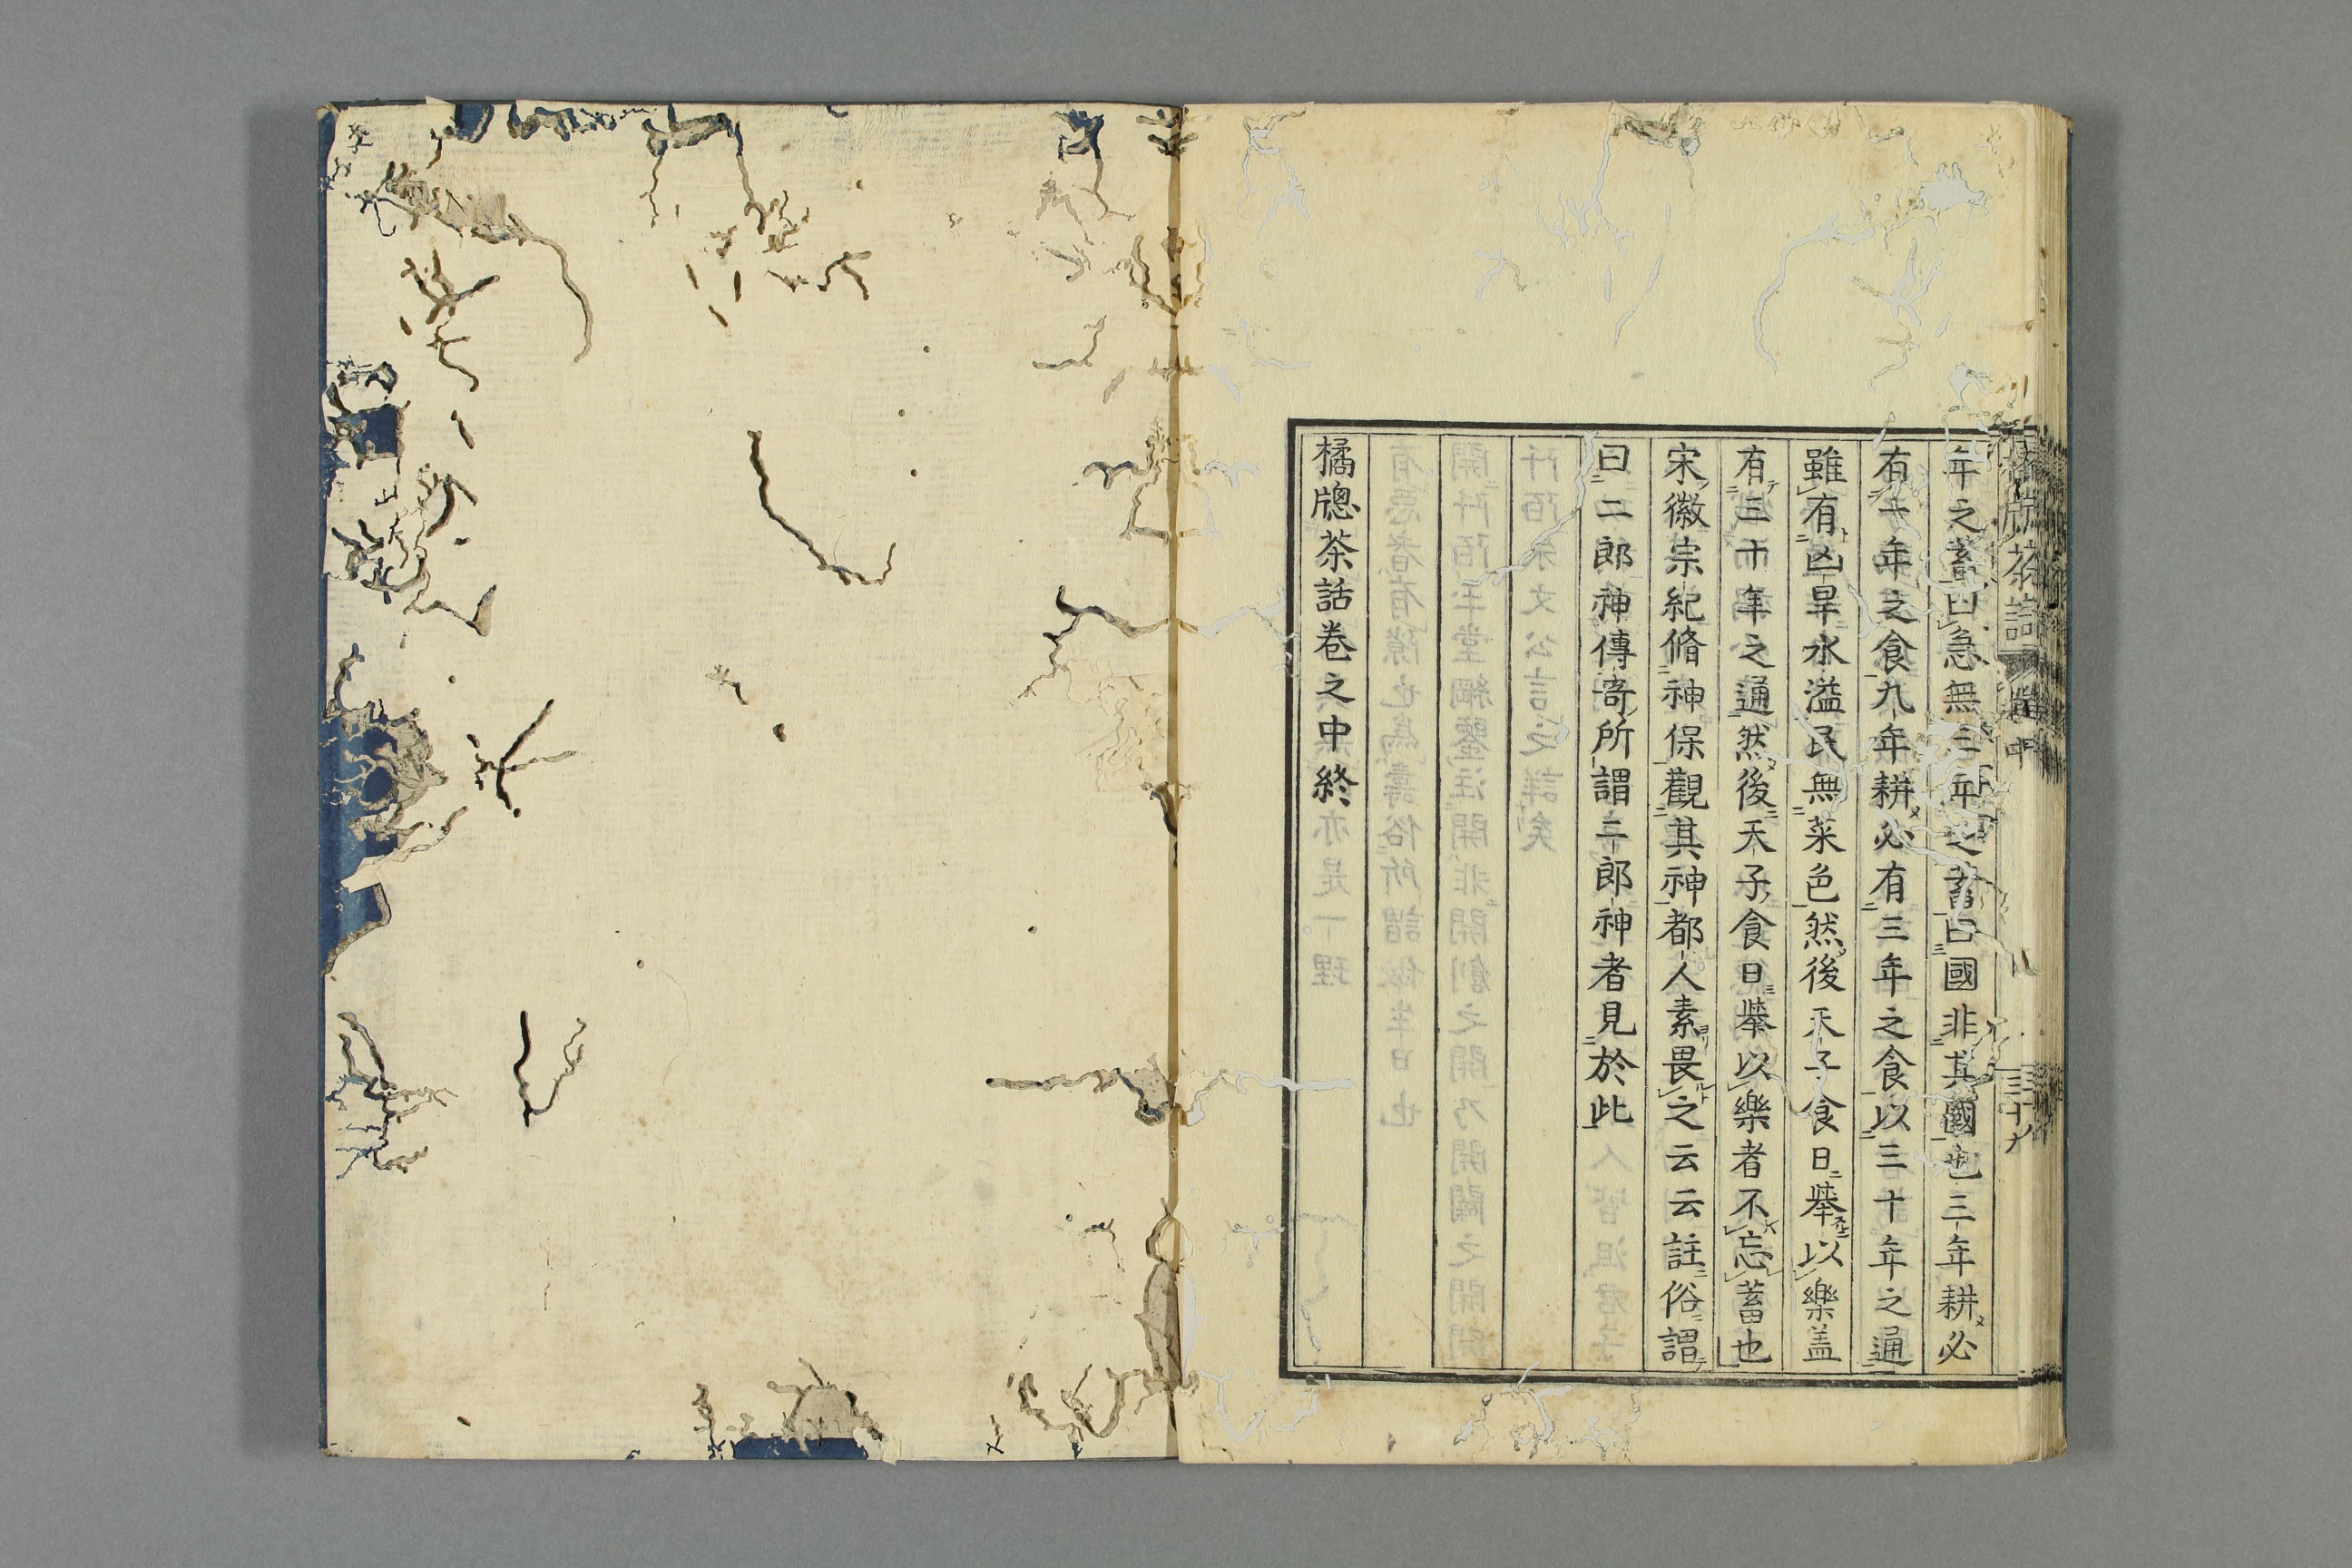 年之蓄曰急無三年之蓄曰國非其國也三年耕必
有一年之食九年耕必有三年之食以三十年之通
雖有凶旱水溢民無菜色然後天子食日擧以樂盖
有三十年之通然後天子食日擧以樂者不忘蓄也
宋徽宗紀脩神保觀其神都人素畏之云云註俗謂
曰二郎神傳寄所謂二郎神者見於此
橘牕茶話卷之中終